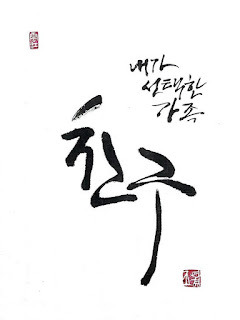 내가
선택한
가족
친구